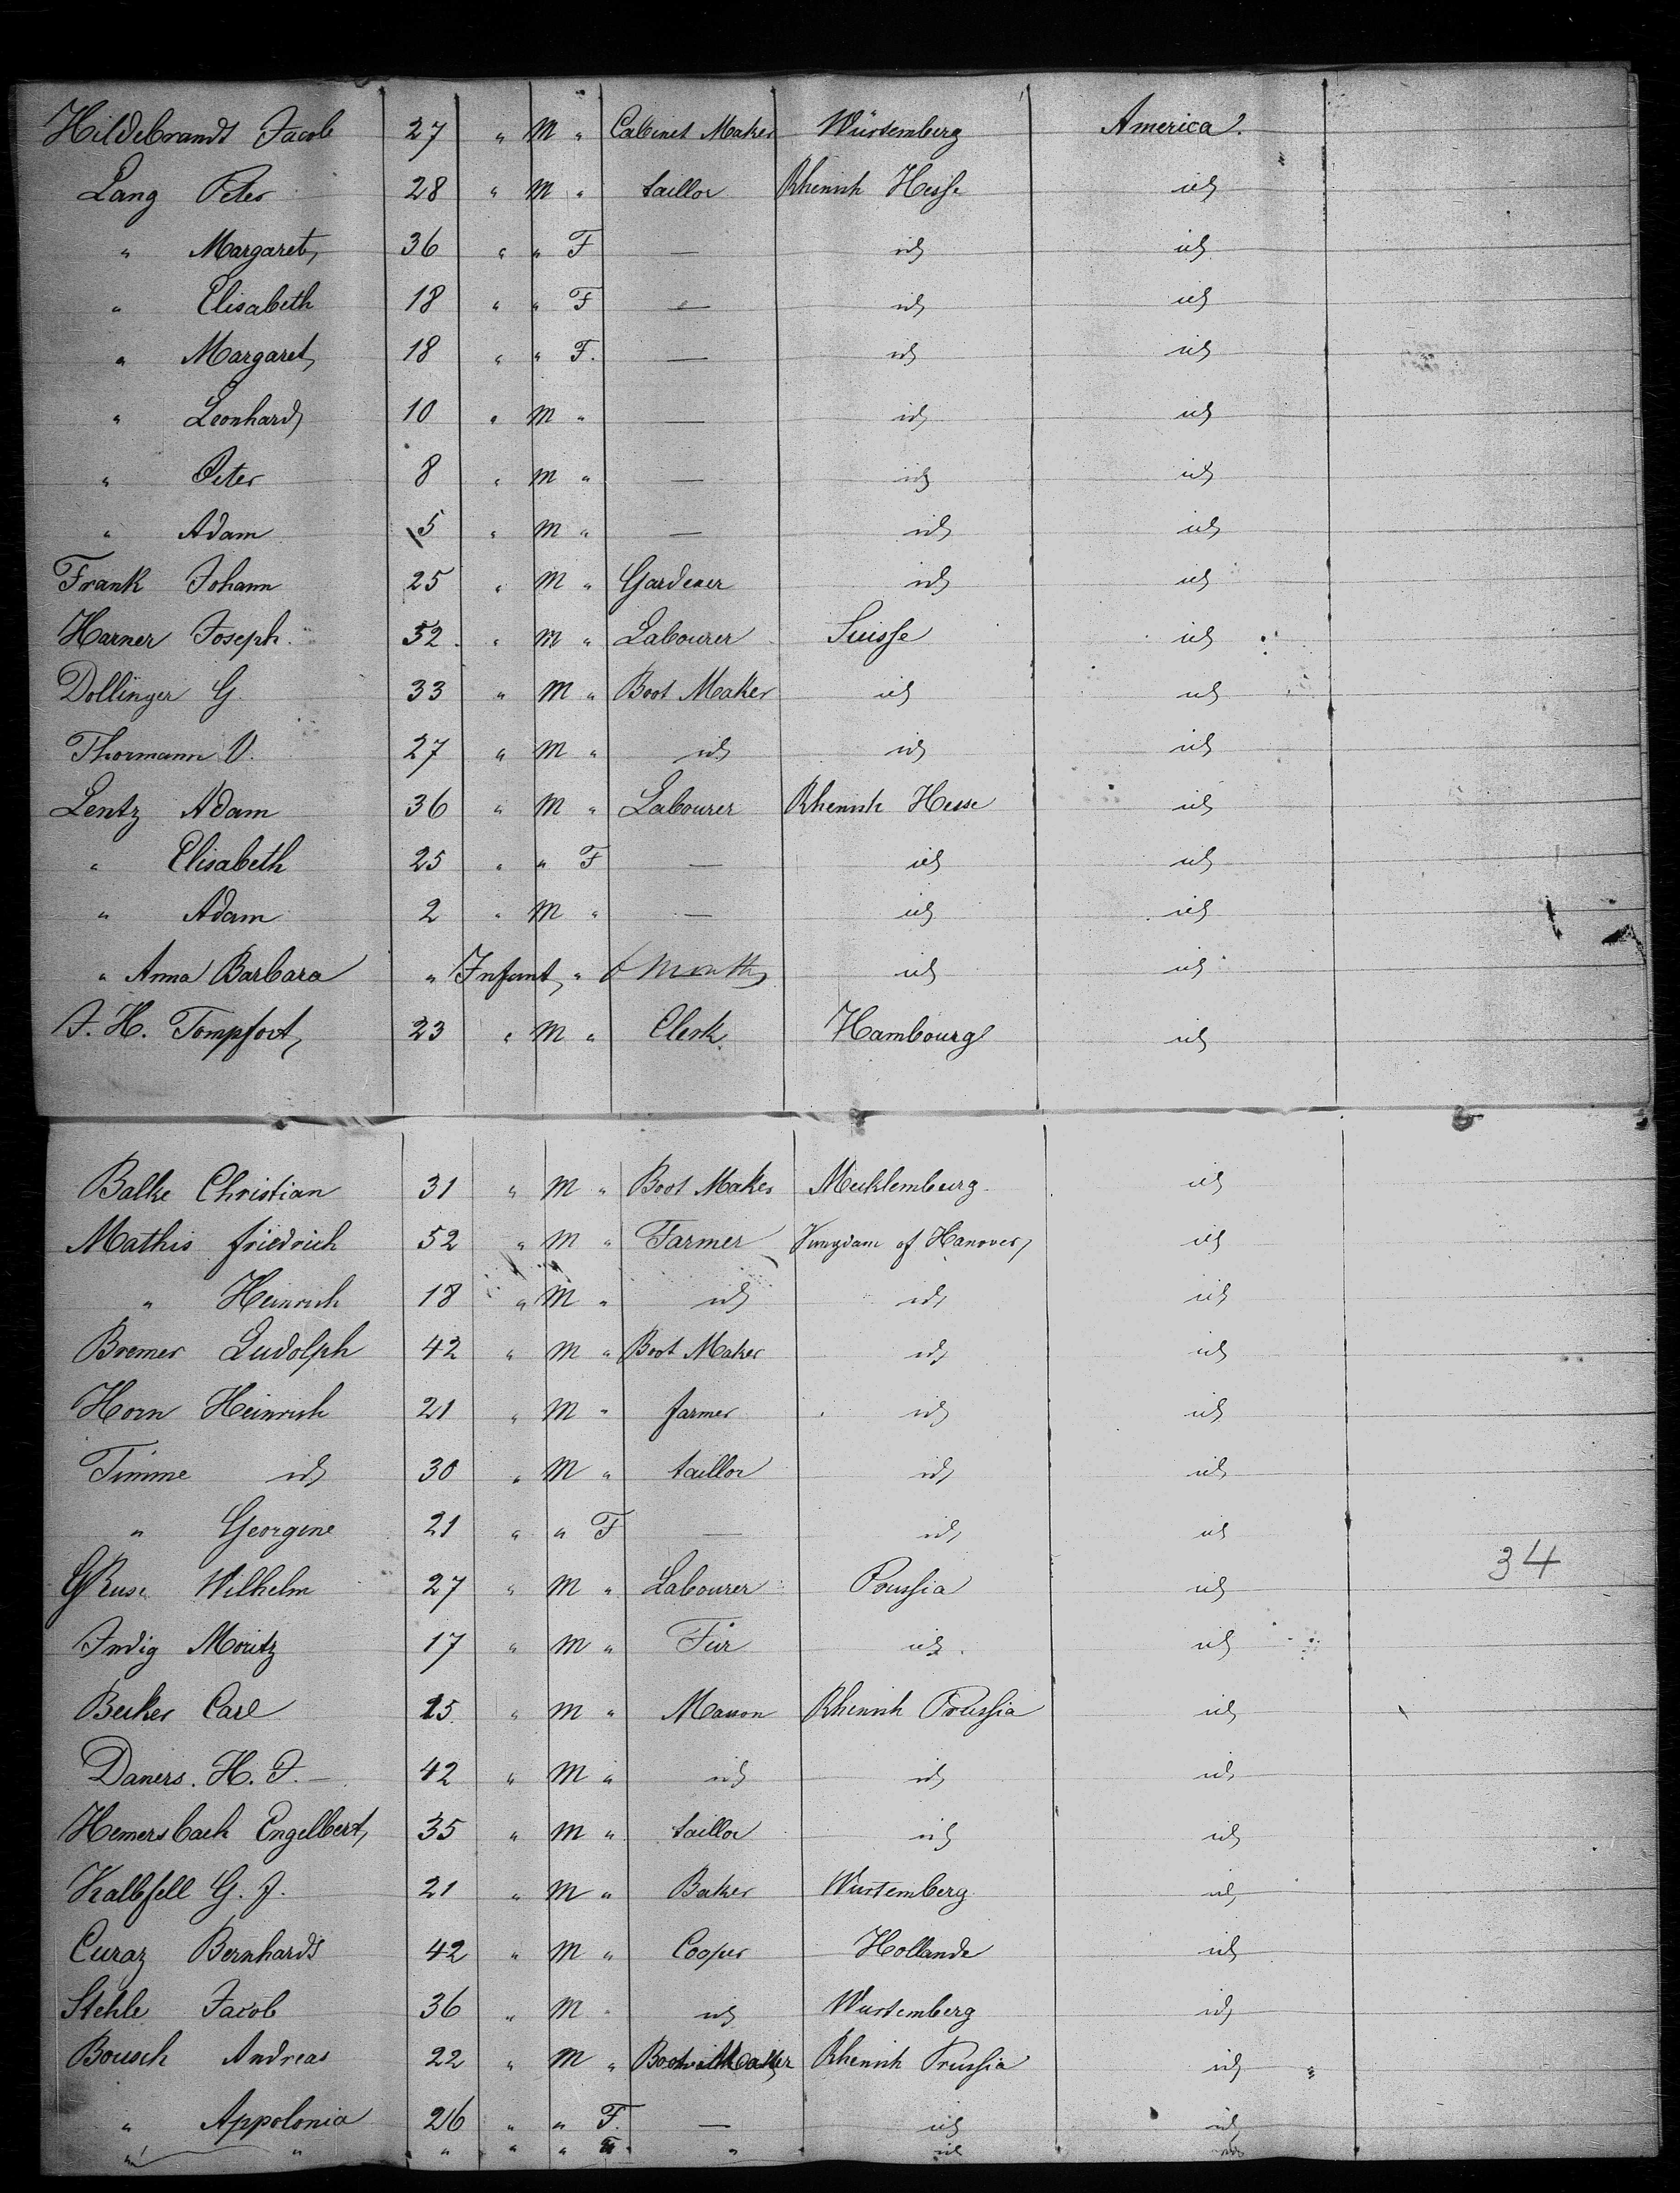 Hildebrandt Jacob 27 " M " Cabinet Maker Würtemberg America.
Lang Peter 28 " M " taillor Rhenish Hesse id
" Margaret 36 " " F — id id
" Elisabeth 18 " " F — id id
" Margaret 18 " " F. — id id
" Leonhard 10 " M " — id id
" Peter 8 " M " — id id
" Adam 5 " M " — id id
Frank Johann 25 " M " Gardener id id
Harner Joseph 52 " M " Labourer Suisse id
Dollinger G 33 " M " Boot Maker id id
Thormann V. 27 " M " id id id
Lentz Adam 36 " M " Labourer Rhenish Hesse id
" Elisabeth 25 " " F — id id
" Adam 2 " M " — id id
" Anna Barbara " Infant " 6 Month id id
J. H. Tompfort 23 " M " Clerk Hambourg id
Balke Christian 31 " M " Boot Maker Mecklemburg id
Mathis friedrich 52 " M " Farmer Kingdam of Hanover id
" Heinrich 18 " M " id id id
Bremer Ludolph 42 " M " Boot Maker id id
Horn Heinrich 21 " M " farmer id id
Timme id 30 " M " taillor id id
" Georgine 21 " " F — id id
34
Wilhelm 27 " M " Labourer Prussia id
Indig Moritz 17 " M " id id
Becker Carl 25 " M " Mason Rhenish Prussia id
Daners. H. J. — 42 " M " id id id
Hemersbach Engelbert 35 " M " taillor id id
Kalbfell G. J. 21 " M " Baker Wurtemberg id
Curaz Bernhardt 42 " M " Cooper Hollande id
Stehle Jacob 36 " M " id Wurtemberg id
Bousch Andreas 22 " M " Boot Maker Rhenish Prussia id
" Appolonia 26 " " F. — id id
" " " " " " id